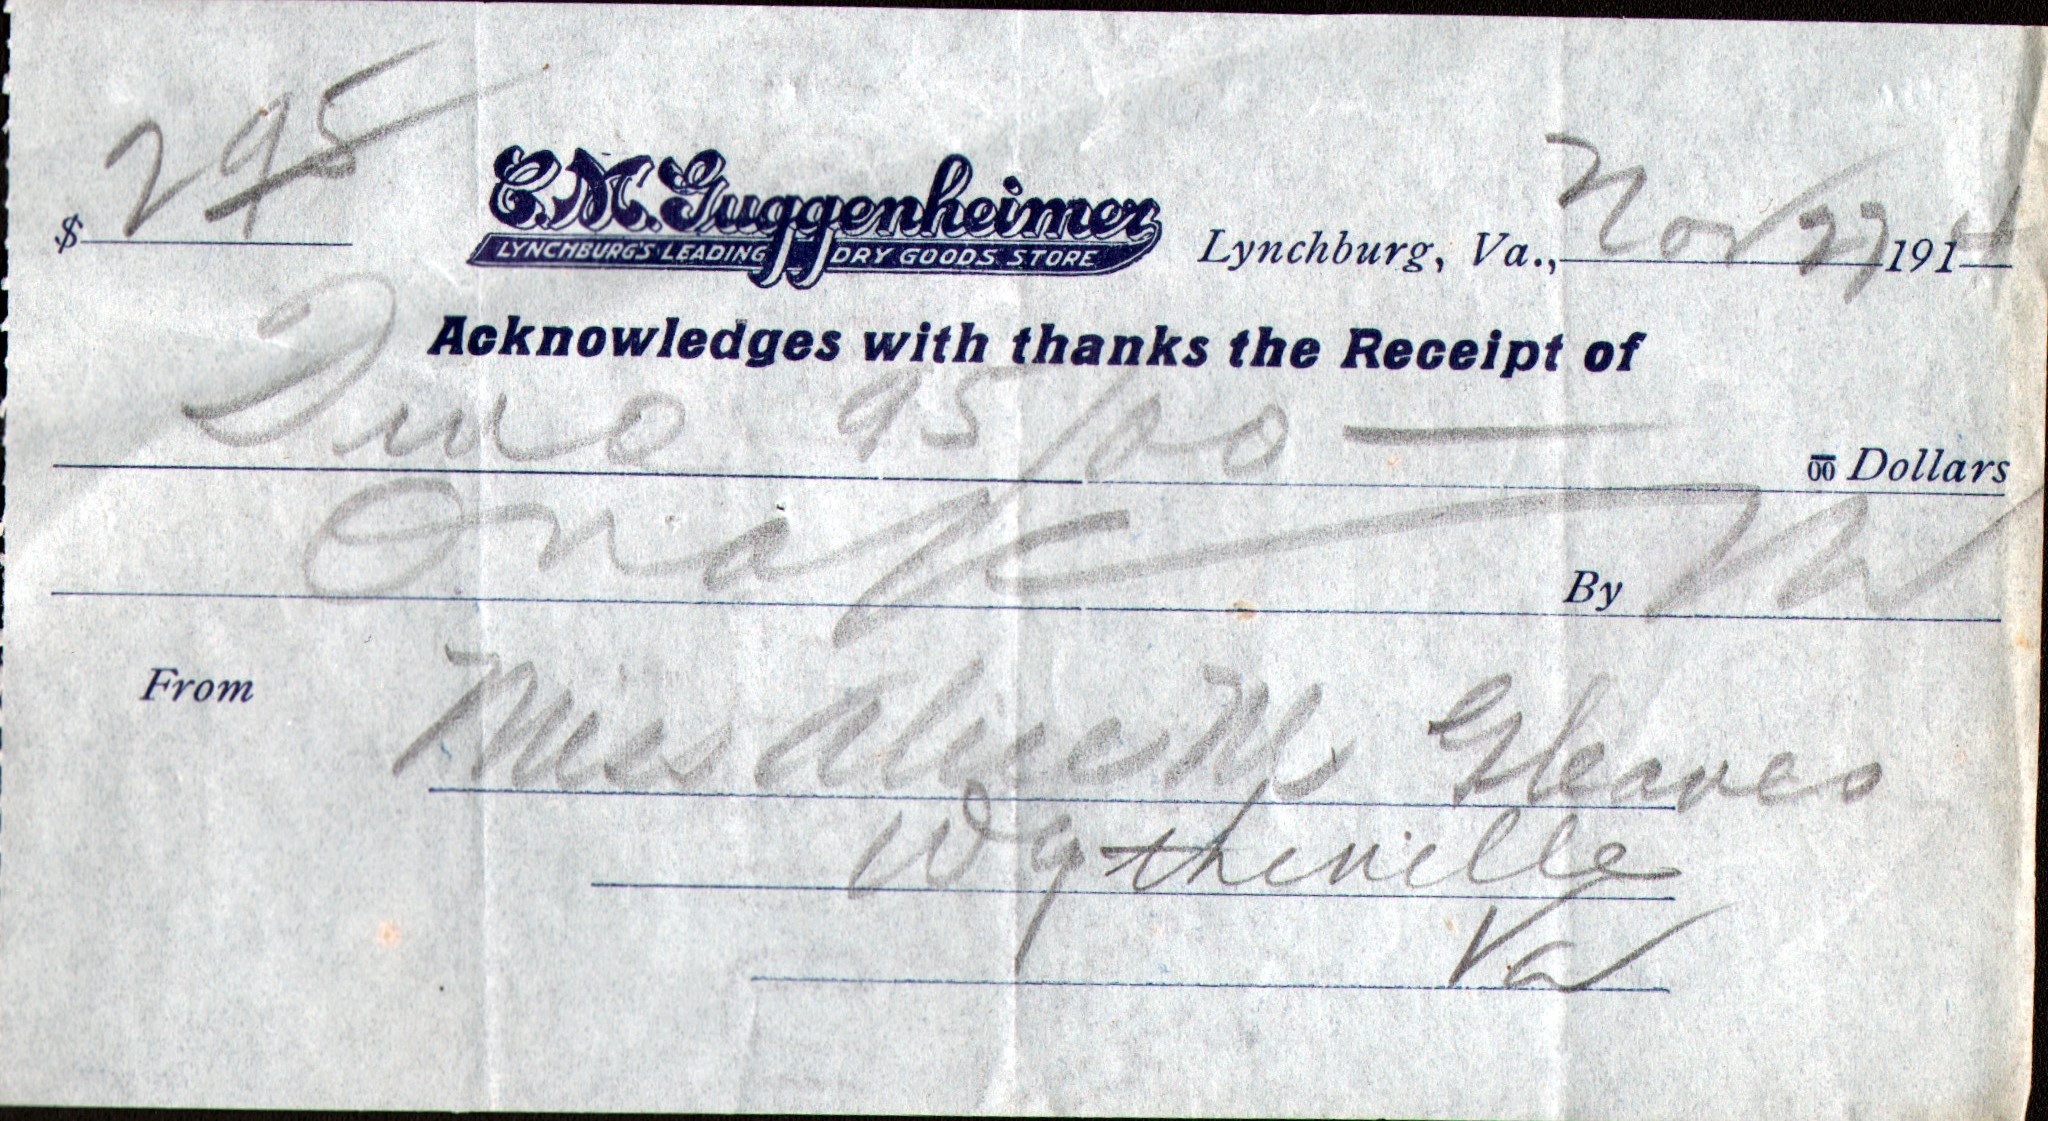 $ 2 95
C. M. Guggenheimer
LYNCHBURG'S LEADING DRY GOODS STORE
Lynchburg, Va., Nov 27 1914
Acknowledges with thanks the Receipt of
Two 95/00 — 00 Dollars
On a/c By
From Miss Alice M. Gleaves
Wytheville
Va